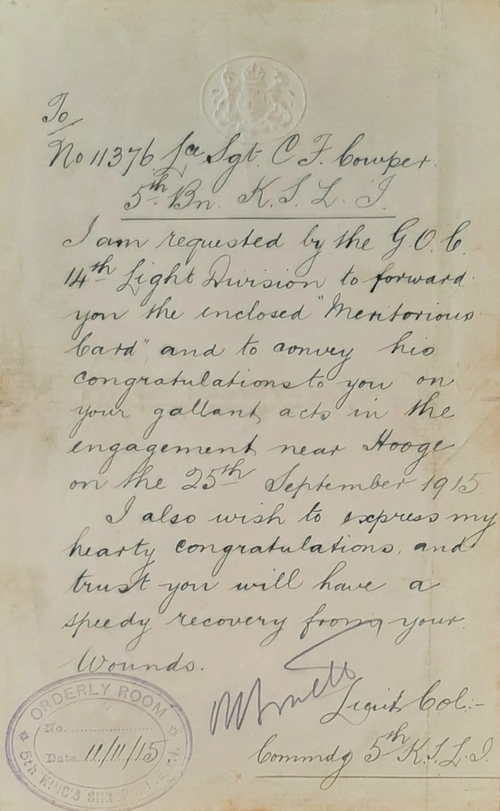 To
No 11376 Sgt. C F. Cowper.
5th Bn. K. S. L. I.
I am requested by the G.O.C.
14th Light Division to forward
you the enclosed "Meritorious
Card", and to convey his
congratulations to you on
your gallant acts in the
engagement near Hooge
on the 25th September 1915
I also wish to express my
hearty congratulations, and
trust you will have a
speedy recovery from your
Wounds.
Lieut Col:-
Commdg 5th K.S.L.I.
ORDERLY ROOM
No.
Date 11/11/15
5th KING'S